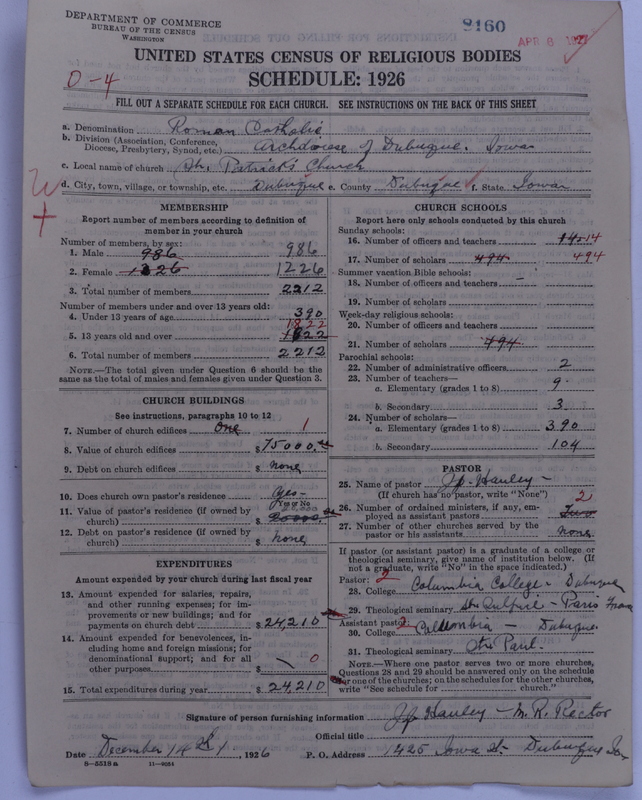 DEPARTMENT OF COMMERCE
BUREAU OF THE CENSUS
WASHINGTON
8160
APR 6 1927
UNITED STATES CENSUS OF RELIGIOUS BODIES
0-4
SCHEDULE: 1926
FILL OUT A SEPARATE SCHEDULE FOR EACH CHURCH. SEE INSTRUCTIONS ON THE BACK OF THIS SHEET
a. Denomination Roman Catholic
b. Division (Association, Conference, Diocese, Presbytery, Synod, etc.) Archdiocese of Dubuque. Iowa
c. Local name of church St. Patrick's Church
d. City, town, village, or township, etc. Dubuque e. County Dubuque f. State Iowa
MEMBERSHIP
Report number of members according to definition of
member in your church
Number of members, by sex:
1. Male 986 986
2. Female 1226 1226
3. Total number of members 2212
Number of members under and over 13 years old:
4. Under 13 years of age 390
1822
5. 13 years old and over 1822
6. Total number of members 2212
NOTE.—The total given under Question 6 should be
same as the total of males and females given under Question 3.
CHURCH BUILDINGS
See instructions, paragraphs 10 to 12
7. Number of church edifices One 1
8. Value of church edifices $ 75000.
9. Debt on church edifices $ None
10. Does church own pastor's residence Yes-
Yes or No
11. Value of pastor's residence (if owned by
church) $
12. Debt on pastor's residence (if owned by
church) $ None
EXPENDITURES
Amount expended by your church during last fiscal year
13. Amount expended for salaries, repairs,
and other running expenses; for im-
provements or new buildings; and for
payments on church debt $ 24,210
14. Amount expended for benevolences, in-
cluding home and foreign missions; for
denominational support; and for all
other purposes $ 0
15. Total expenditures during year $ 24,210
CHURCH SCHOOLS
Report here only schools conducted by this church
Sunday schools:
16. Number of officers and teachers 14 14
17. Number of scholars 494 494
Summer vacation Bible schools:
18. Number of officers and teachers
19. Number of scholars
Week-day religious schools:
20. Number of officers and teachers
21. Number of scholars 494
Parochial schools:
22. Number of administrative officers 2
23. Number of teachers—
a. Elementary (grades 1 to 8) 9
b. Secondary 3
24. Number of scholars—
a. Elementary (grades 1 to 8) 390
b. Secondary 104
PASTOR
25. Name of pastor Jp. Hanley -
(If church has no pastor, write "None")
26. Number of ordained ministers, if any, em-
ployed as assistant pastors Two 2
27. Number of other churches served by the
pastor or his assistants None
If pastor (or assistant pastor) is a graduate of a college or
theological seminary, give name of institution below. (If
not a graduate, write "No" in the space indicated.)
Pastor: 2
28. College Columbia College - Dubuque
29. Theological seminary St. Sulpice - Paris
Assistant pastor: 2
30. College Columbia - Dubuque
31. Theological seminary St. Paul.
NOTE.—Where one pastor serves two or more churches,
Questions 28 and 29 should be answered only on the schedule
for one of the churches; on the schedules for the other churches,
write "See schedule for church."
Signature of person furnishing information Jp Hanley - M. R. Rector
Official title
Date December 14th, 1926 P. O. Address 1425 Iowa St- Dubuque Ia-
8—5518a 11—9554